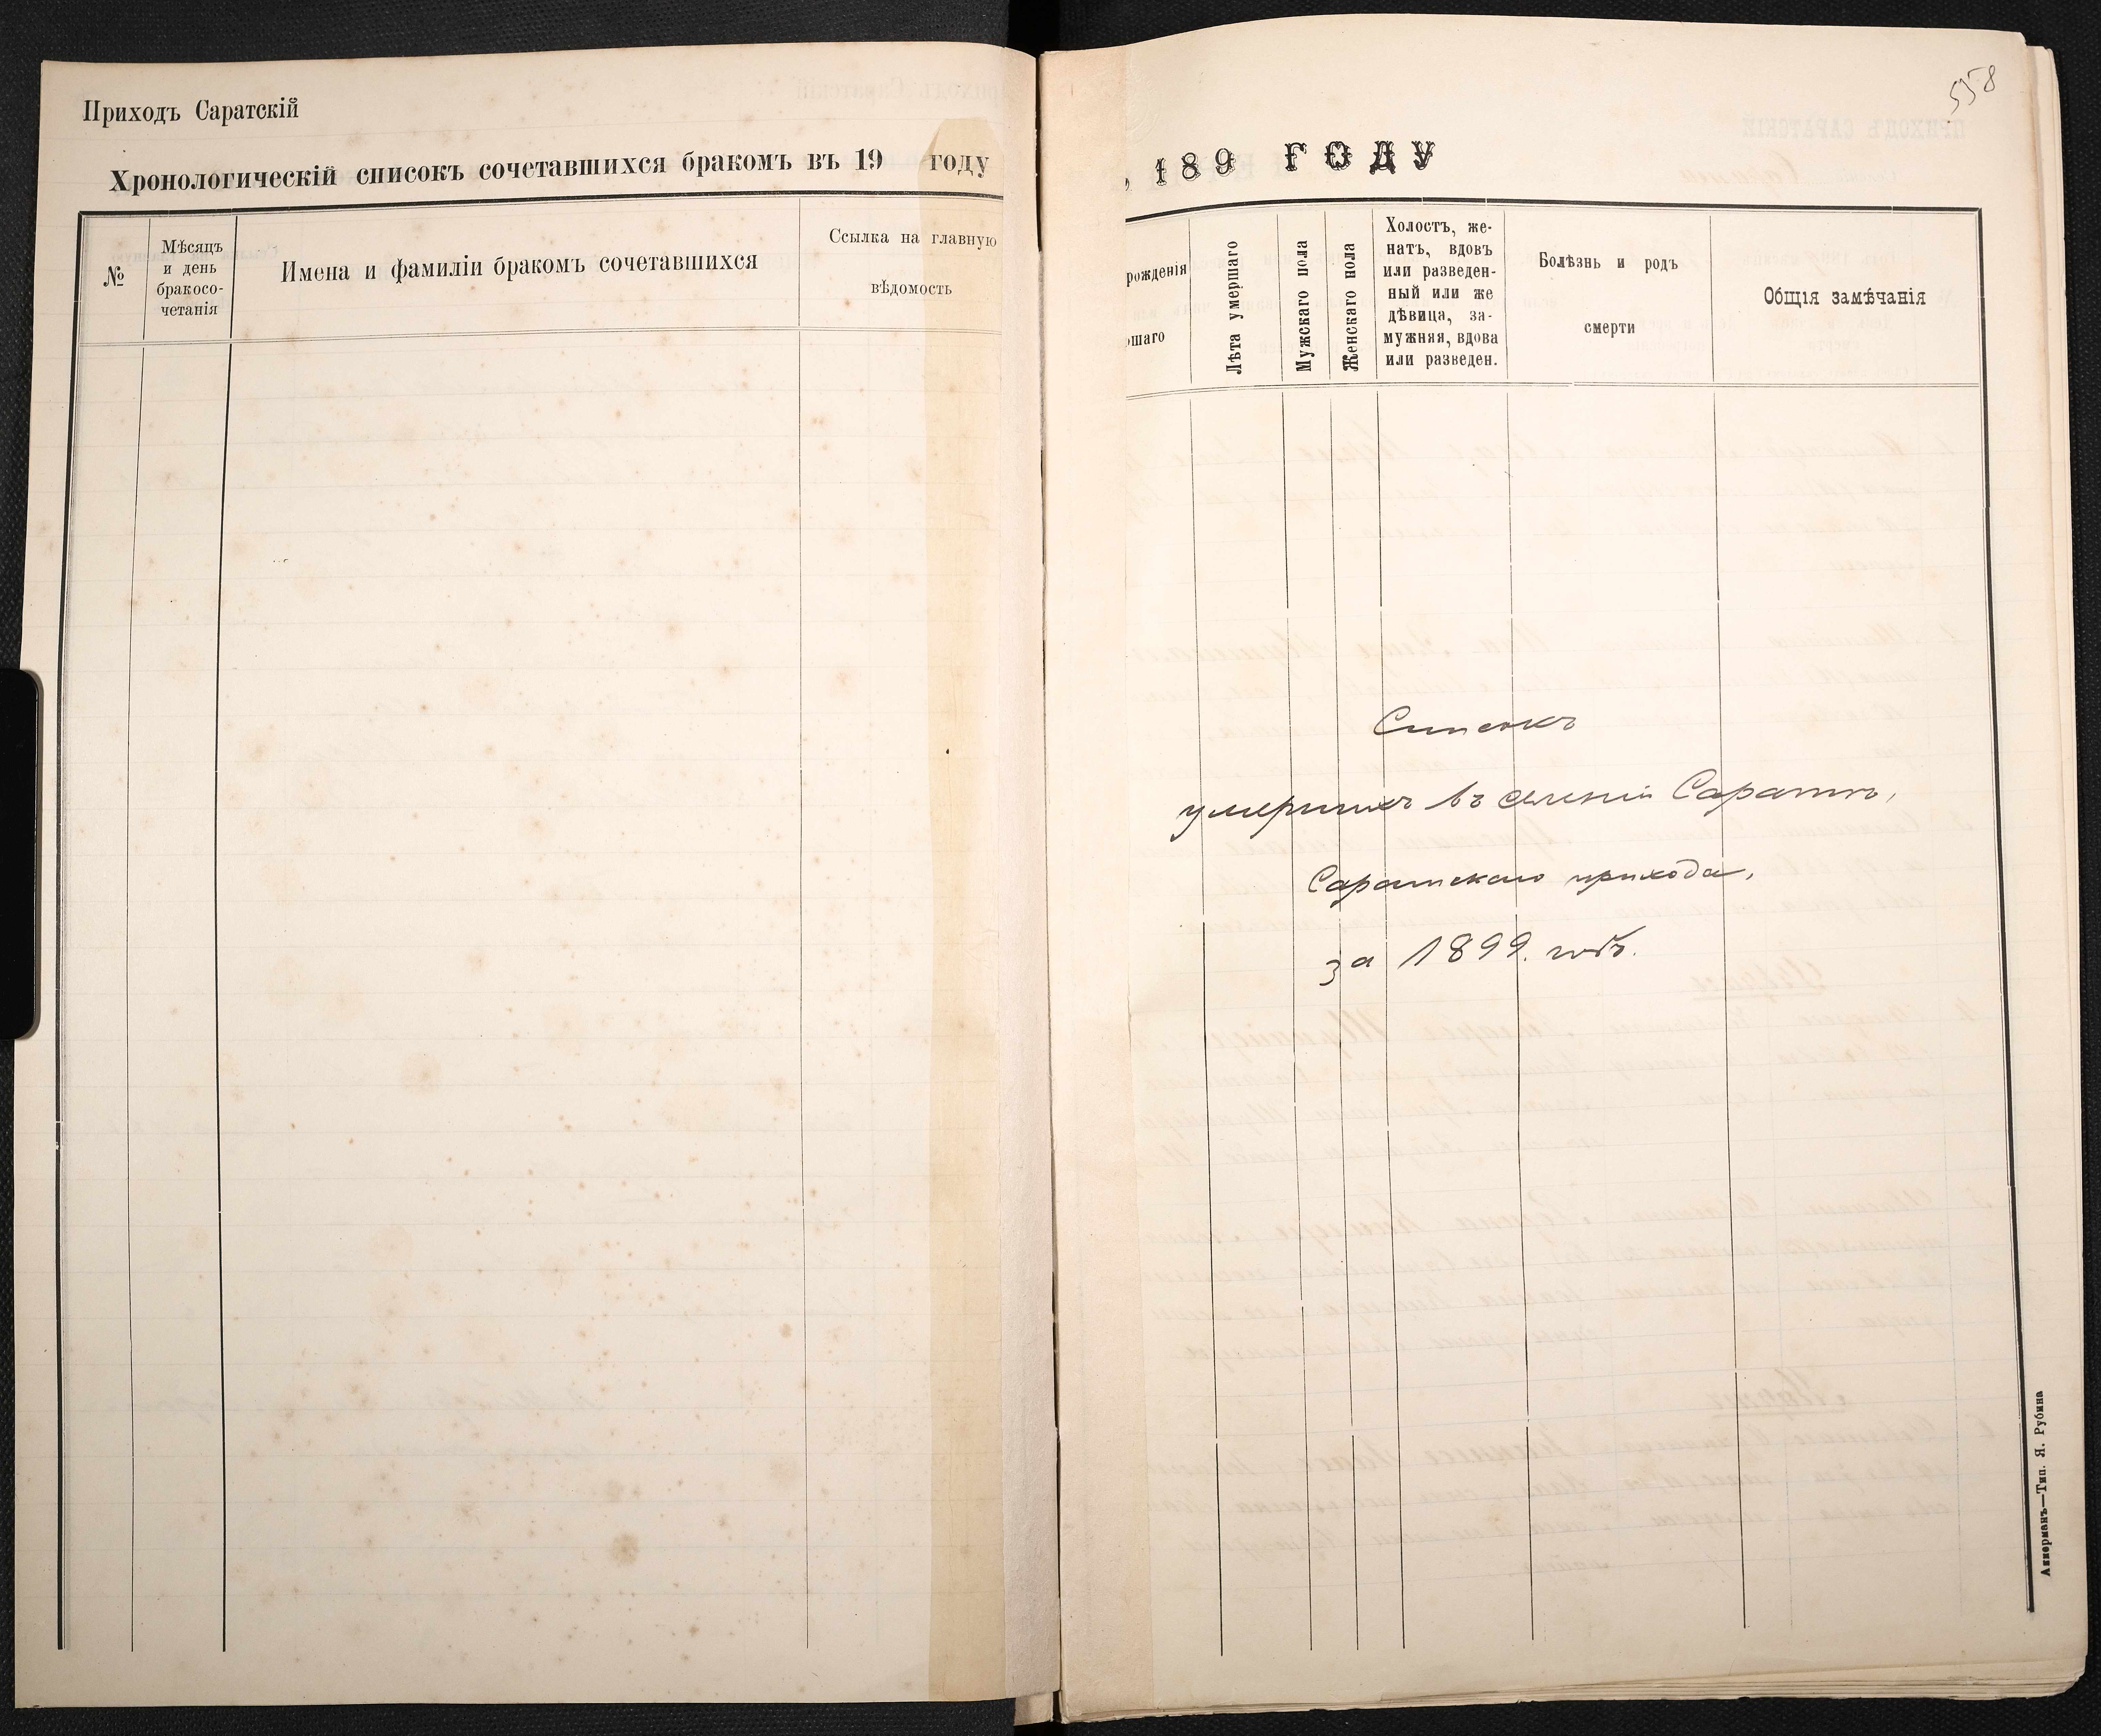 Приходъ Саратскій
Хронологическій списокъ сочетавшихся бракомъ въ 19 году
№
Мѣсяцъ
и день
бракосо-
четанія
Имена и фамиліи бракомъ сочетавшихся
Ссылка на главную
вѣдомость
558
189 ГОДУ
рожденія
шаго
Лѣта умершаго
Мужскаго пола
Женскаго пола
Холостъ, же-
натъ, вдовъ
или разведен-
ный или же
дѣвица, за-
мужняя, вдова
или разведен.
Болѣзнь и родъ
смерти
Общія замѣчанія
Списокъ
умершихъ въ селеніи Сарата,
Саратскаго прихода,
за 1899. годъ.
Аккерманъ—Тип. Я. Рубина